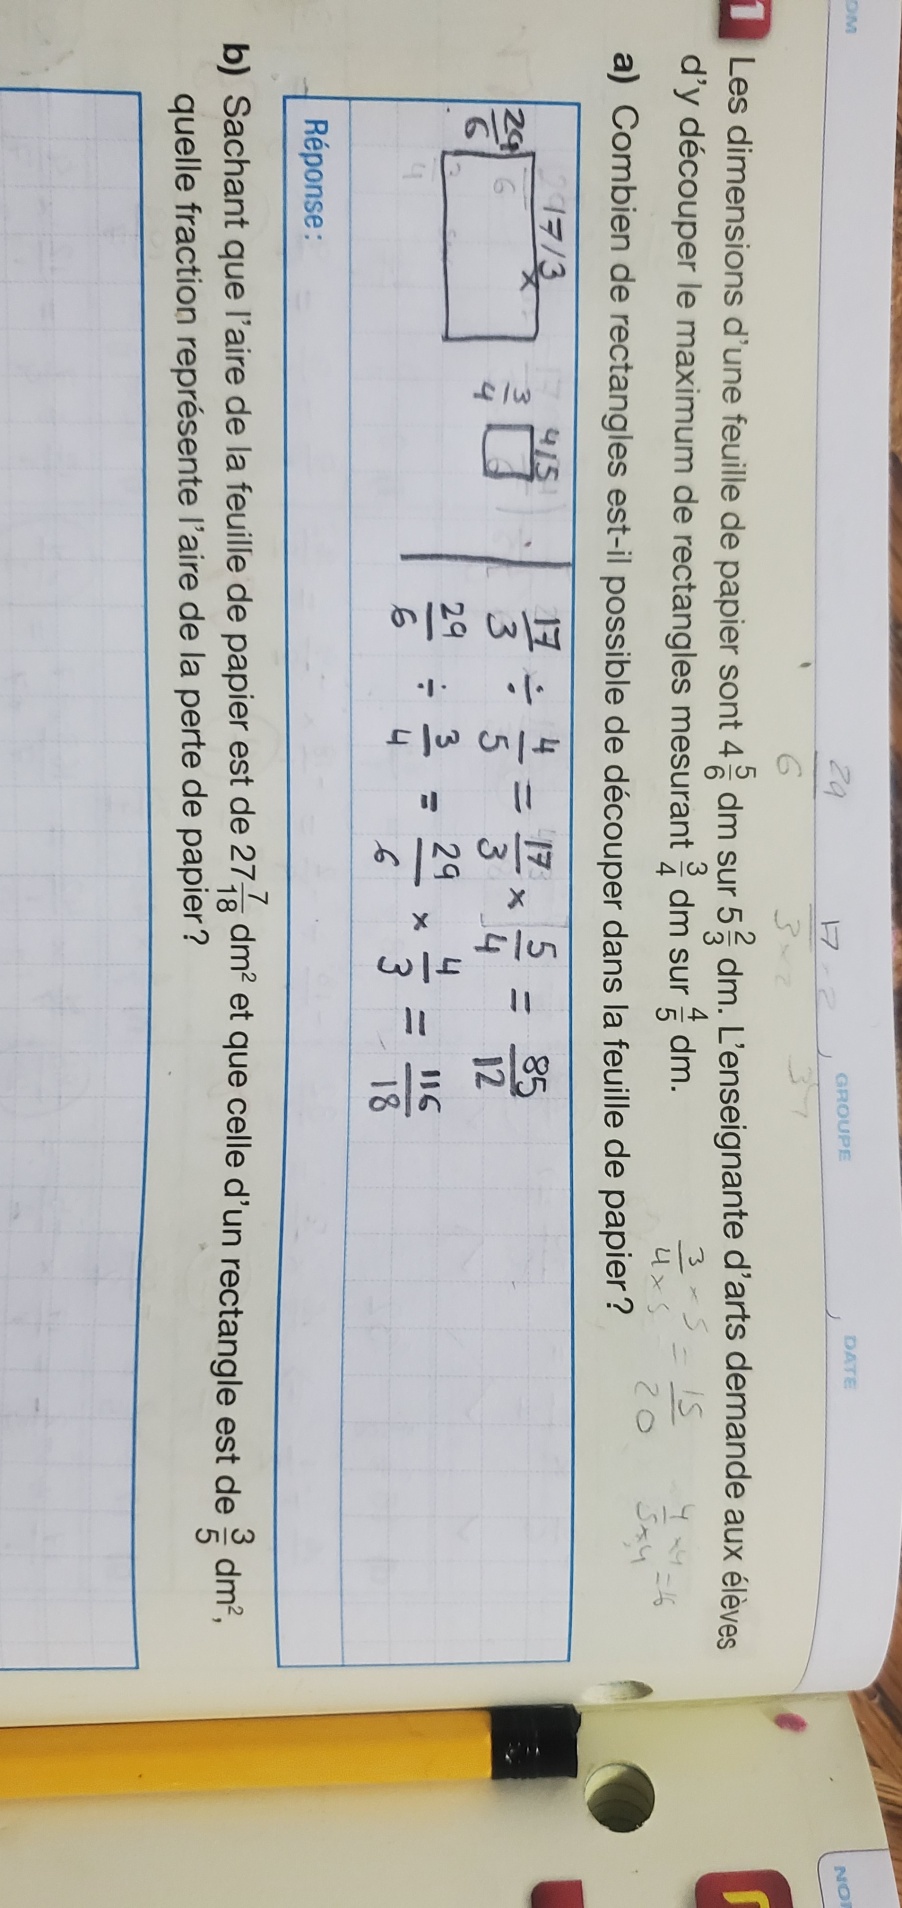 OM
GROUPE
DATE
NOM
29/6
17/3
3/4 × 5 = 15/20
4/5 × 4 = 16
1 Les dimensions d'une feuille de papier sont 4 5/6 dm sur 5 2/3 dm. L'enseignante d'arts demande aux élèves
d'y découper le maximum de rectangles mesurant 3/4 dm sur 4/5 dm.
a) Combien de rectangles est-il possible de découper dans la feuille de papier?
17/3
29/6
×
4/5
3/4
17/3 ÷ 4/5 = 17/3 × 5/4 = 85/12
29/6 ÷ 3/4 = 29/6 × 4/3 = 116/18
Réponse:
b) Sachant que l'aire de la feuille de papier est de 27 7/18 dm² et que celle d'un rectangle est de 3/5 dm²,
quelle fraction représente l'aire de la perte de papier?